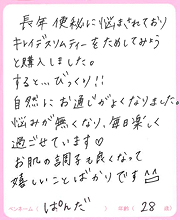 長年便秘に悩まされており
キレイデスリムティーをためしてみよう
と購入しました。
すると…びっくり!!
自然にお通じがよくなりました。
悩みが無くなり、毎日楽しく
過ごせています♡
お肌の調子も良くなって
嬉しいことばかりです^^
ペンネーム( ぱんだ ) 年齢( 28 歳)